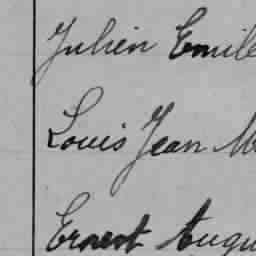 Julien Emile
Louis Jean M
Ernest Augu